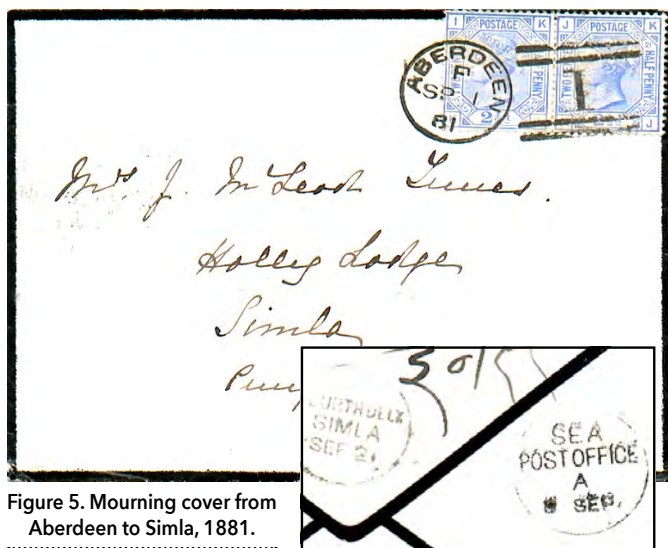 I POSTAGE K J POSTAGE K
HALF PENNY TWO HALF PENNY
2 J
ABERDEEN
SP 1
81
1
Mrs J. McLeod Innes.
Holly Lodge
Simla
SIMLA
SEP 21
SEA
POST OFFICE
A
SEP.
Figure 5. Mourning cover from
Aberdeen to Simla, 1881.